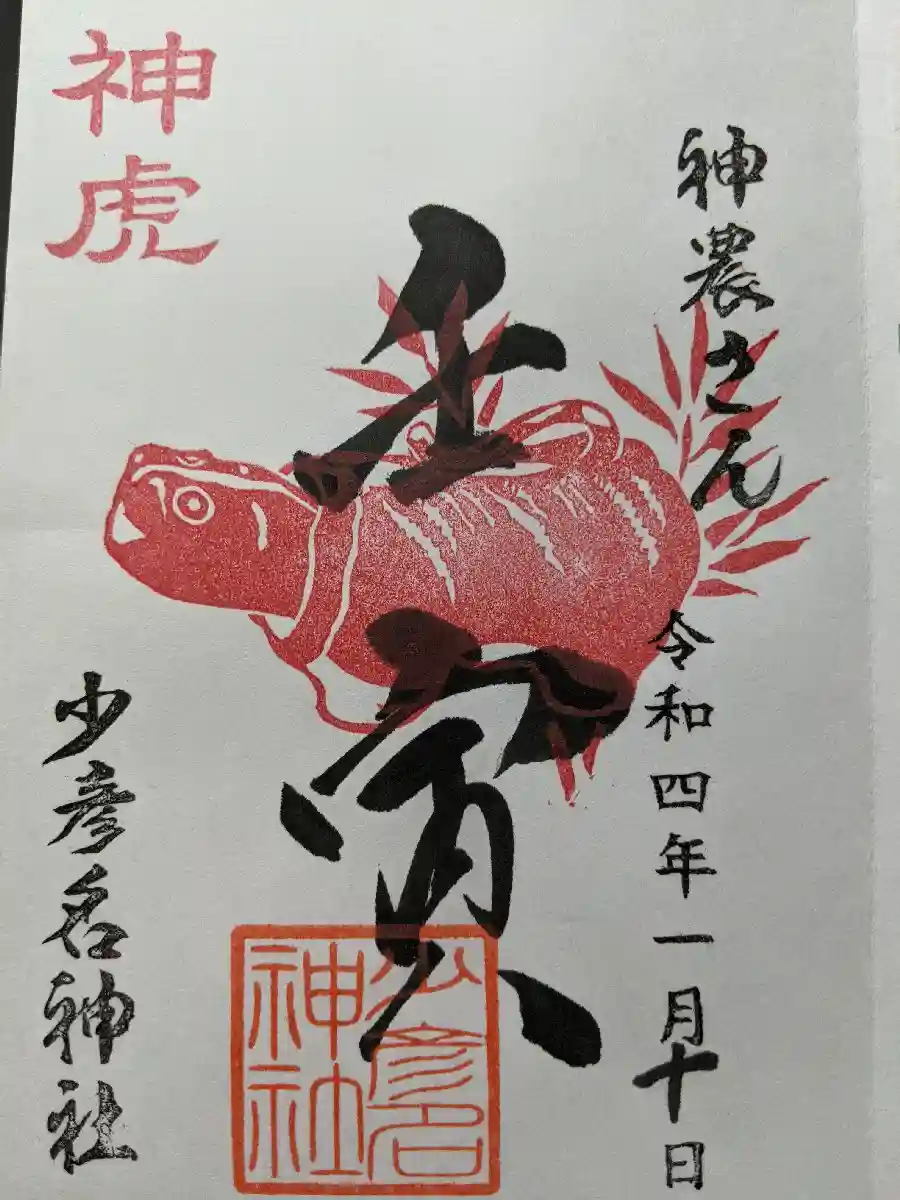 神農さん
令和四年一月十日
壬寅
神虎
少彦名神社
少彦名
神社